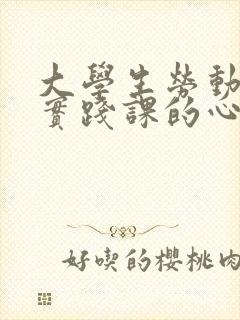 大學生勞動
實踐課的心
好喫的櫻桃肉